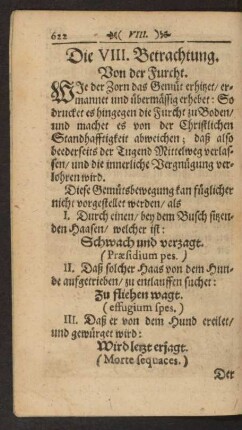 622 (VIII.)
Die VIII. Betrachtung.
Von der Furcht.
WIe der Zorn das Gemüt erhitzet/ er-
mannet und übermässig erhebet: So
drucket es hingegen die Furcht zu Boden/
und machet es von der Christlichen
Standhafftigkeit abweichen; daß also
beederseits der Tugend Mittelweg verlas-
sen/ und die innerliche Vergnügung ver-
lohren wird.
Diese Gemütsbewegung kan füglicher
nicht vorgestellet werden/ als
I. Durch einen/ bey dem Busch sitzen-
den Haasen/ welcher ist:
Schwach und verzagt.
(Præsidium pes.)
II. Daß solcher Haas von dem Hun-
de aufgetrieben/ zu entlauffen suchet:
Zu fliehen wagt.
(effugium spes.)
III. Daß er von dem Hund ereilet/
und gewürget wird:
Wird letzt erjagt.
(Morte sequaces.)
Der